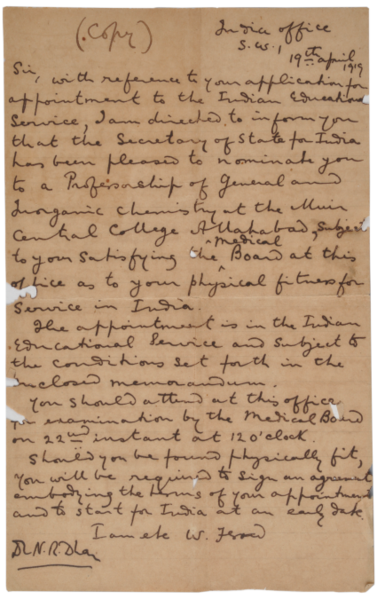 (Copy)
India Office
S.W.1
19th April 1919
Sir, with reference to your application for
appointment to the Indian Educational
Service, I am directed to inform you
that the Secretary of State for India
has been pleased to nominate you
to a Professorship of General and
Inorganic Chemistry at the Muir
Central College Allahabad, subject
to your satisfying the Medical Board at this
office as to your physical fitness for
Service in India.
The appointment is in the Indian
Educational Service and subject to
the conditions set forth in the
enclosed memorandum.
You should attend at this office
for examination by the Medical Board
on 22nd instant at 12 o'clock.
Should you be found physically fit,
you will be required to sign an agreement
embodying the terms of your appointment
and to start for India at an early date.
I am etc W.
Dr N.R. Dhar